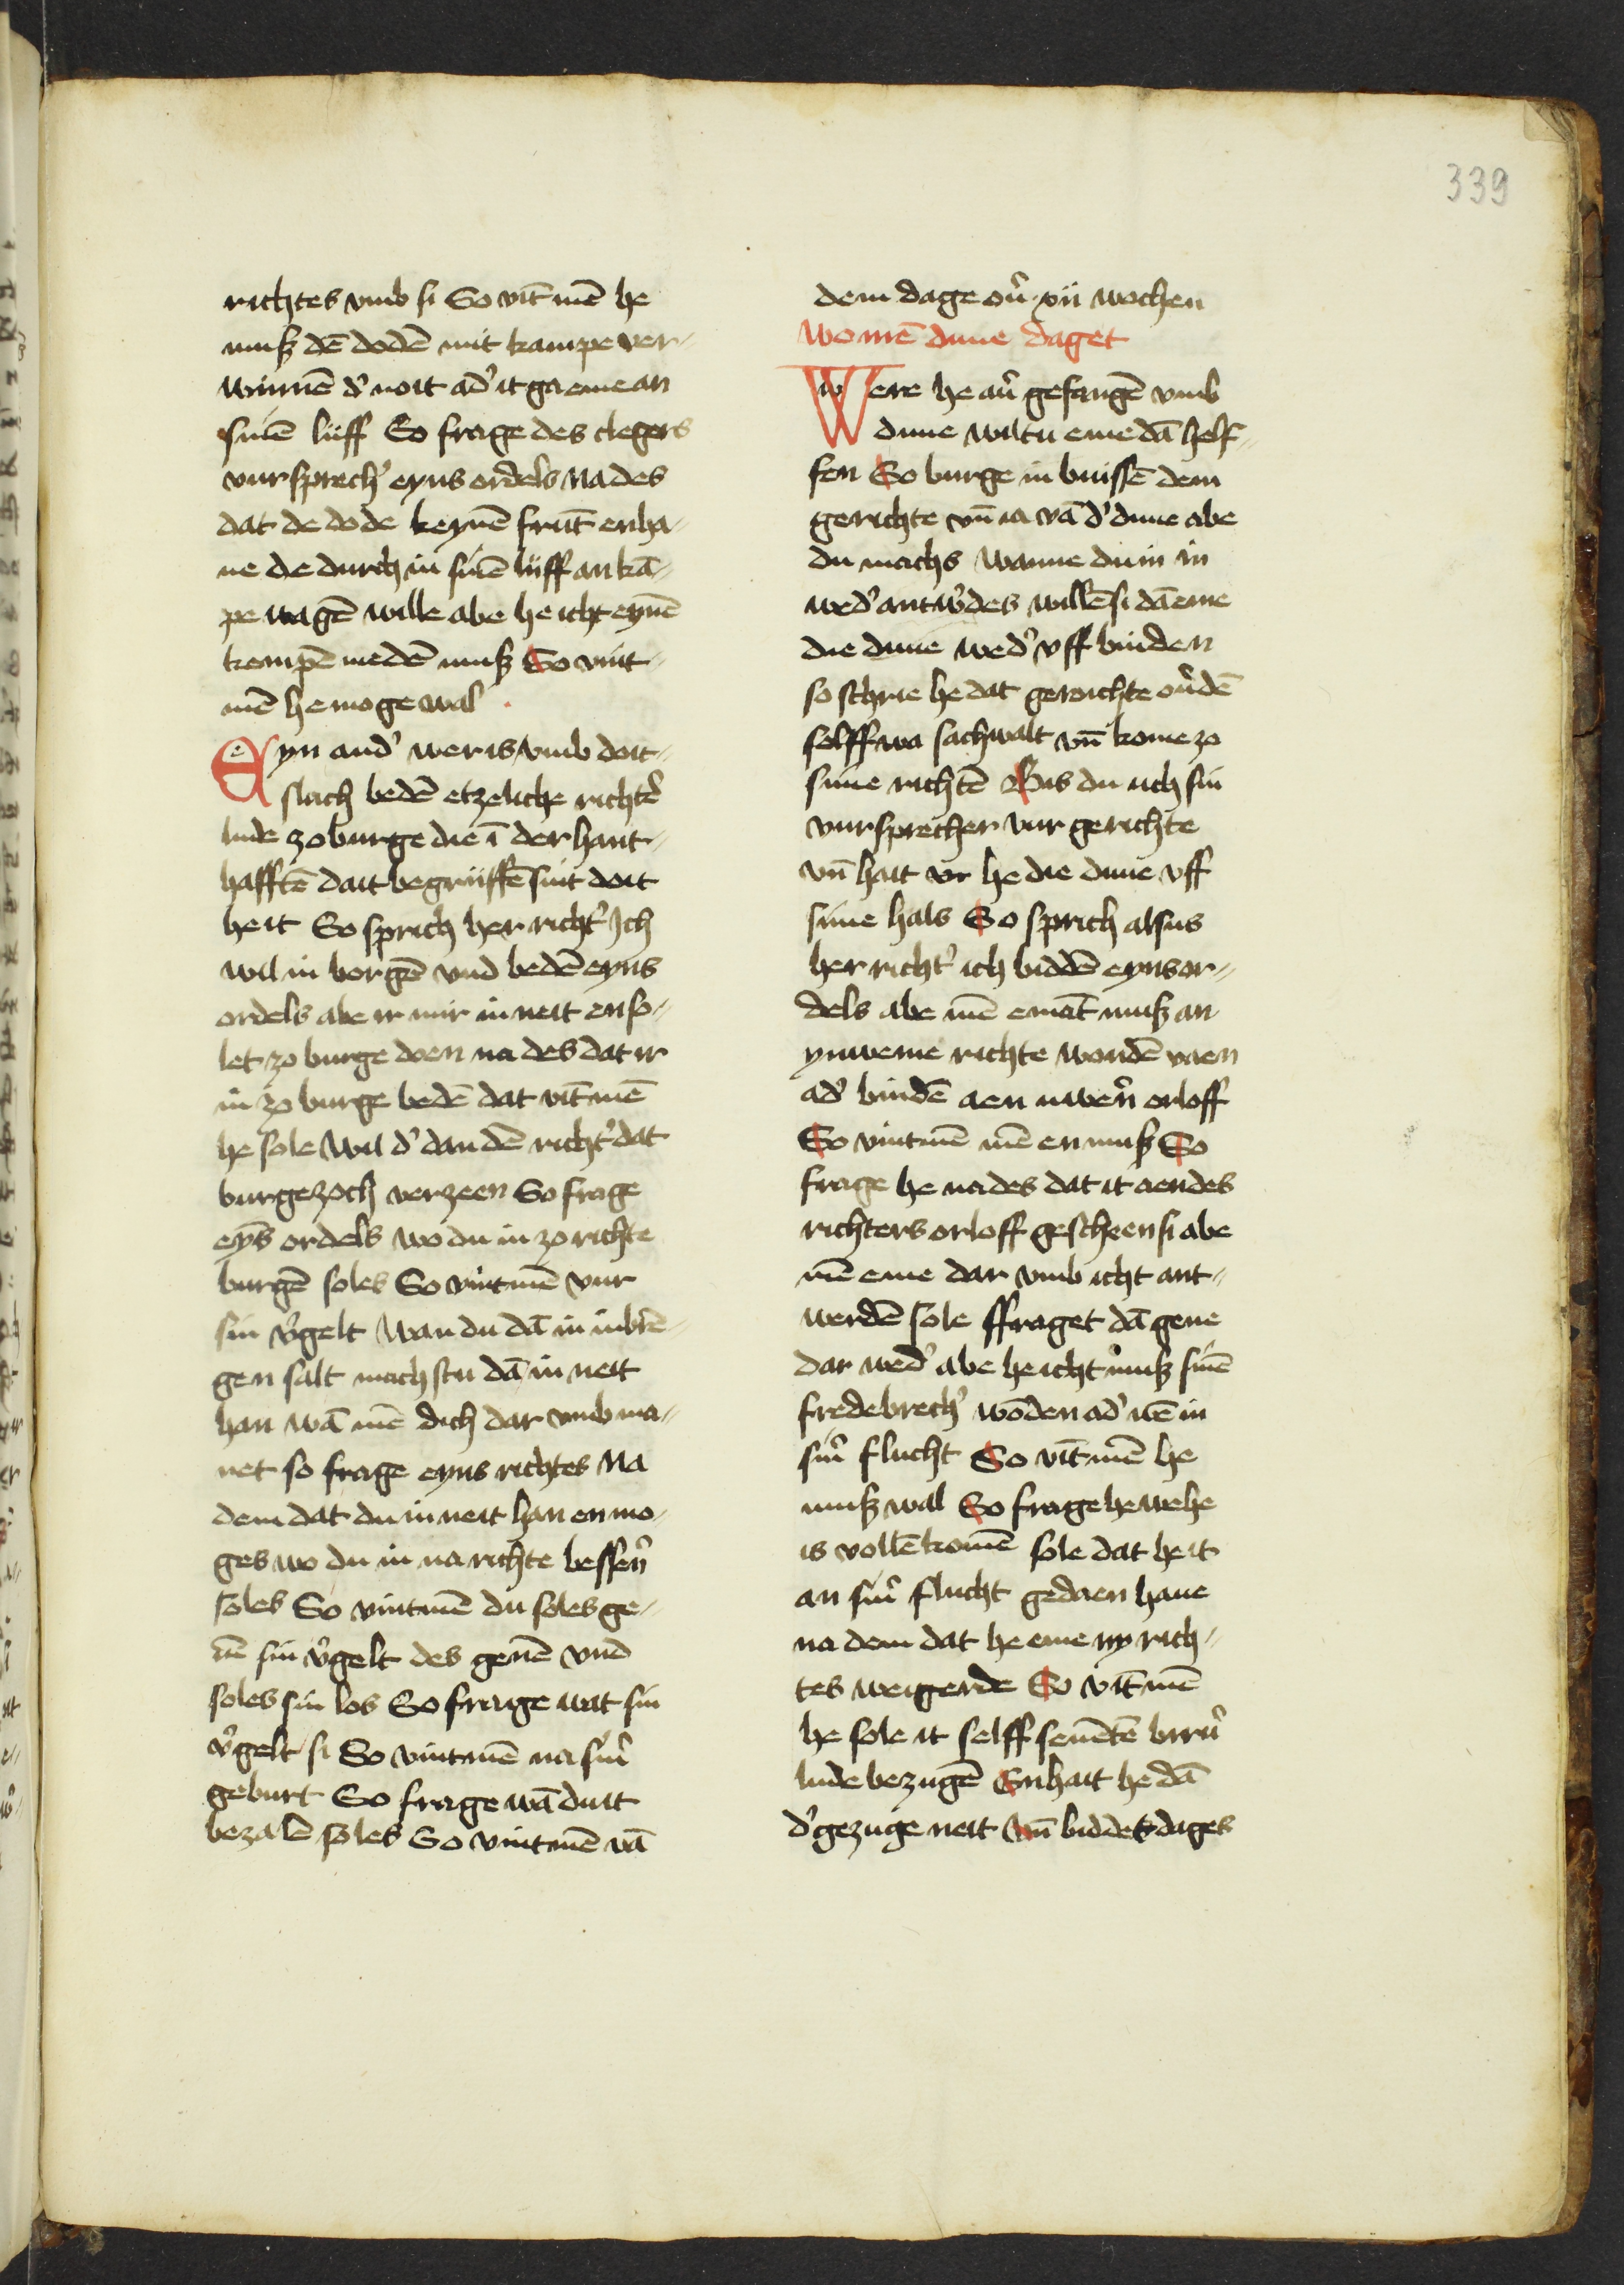 339
richtes vmb si So vīt mē he
muſz dē dodē mit kampe ver-
winnē d' noit ad' it ga eme an
sinē lijff So frage des clegers
vursprech' eyns ordels Na des
dat de dode keynē frūt enha-
ue de durch in sinē lijff an kā-
pe wagē wille abe he icht eynē
kempē medē muſz So vint-
mē he moge wal
Eyn and' wer is vmb doit-
slach bedē etzeliche richt'
lude zo burge die ī der hant-
hafftē dait begrijffē sint doit
he it So sprich her richt' Ich
wil in borgē vnd bedē eyns
ordels abe ir mir in neit enso-
let zo burge doen na des dat ir
in zo burge bedē dat vīt mē
he sole Wil d' dan dē richt' dat
burgezoch verzeen So frage
eyns ordels wo du in zo richte
burgē soles So vint mē vur
sin w'gelt Wan du dā in inbrē-
gen salt mach stu dā in neit
han wā mē dich dar vmb ma-
net so frage eyns richtes Na
dem dat du in neit han en mo-
ges wo du in na richte besser̄
soles So vint mē du soles ge-
uē sin w'gelt des genē vnd
soles sin los So frage wat sin
w'gelt si So vint mē na sinr̄
geburt So frage wā du it
bezalē soles So vint mē vā
dem dage ouer xij wochen
Wo mē diue daget
Were he au' gefangē vmb
diue wiltu eme dā helf-
fen So burge in buissē dem
gerichte vn̄ ia vā d' diue abe
du machs wanne du in in
wed' antw'des willē si dā eme
die diue wed' vff binden
so schrie he dat geroichte ou' dē
selff wa sachwalt vn̄ kome zo
sime richtē Bis du ich sin
vursprecher vur gerichte
vn̄ hait vr he die diue vff
sime hals So sprich alsus
her richt' ich biddē eyns or-
dels abe mē emāt muſz an
ynweme richte wondē vaen
ad' bindē aen uwer̄ orloff
So vint mē mē en muſz So
frage he na des dat it aen des
richters orloff gescheen si abe
mē eme dar vmb icht ant-
werdē sole ffraget dā gene
dar wed' abe he icht muſz sinē
fredebrech' wōden ad' uē in
sinr̄ flucht So vīt mē he
muſz wal So frage he we he
is vollē komē sole dat he it
an sinr̄ flucht gedaen haue
na dem dat he eme ny rich-
tes weigerde So vīt mē
he sole it selff seuēdē biru'
lude bezugē Enhait he dā
d' gezuge neit vn̄ biddet dages